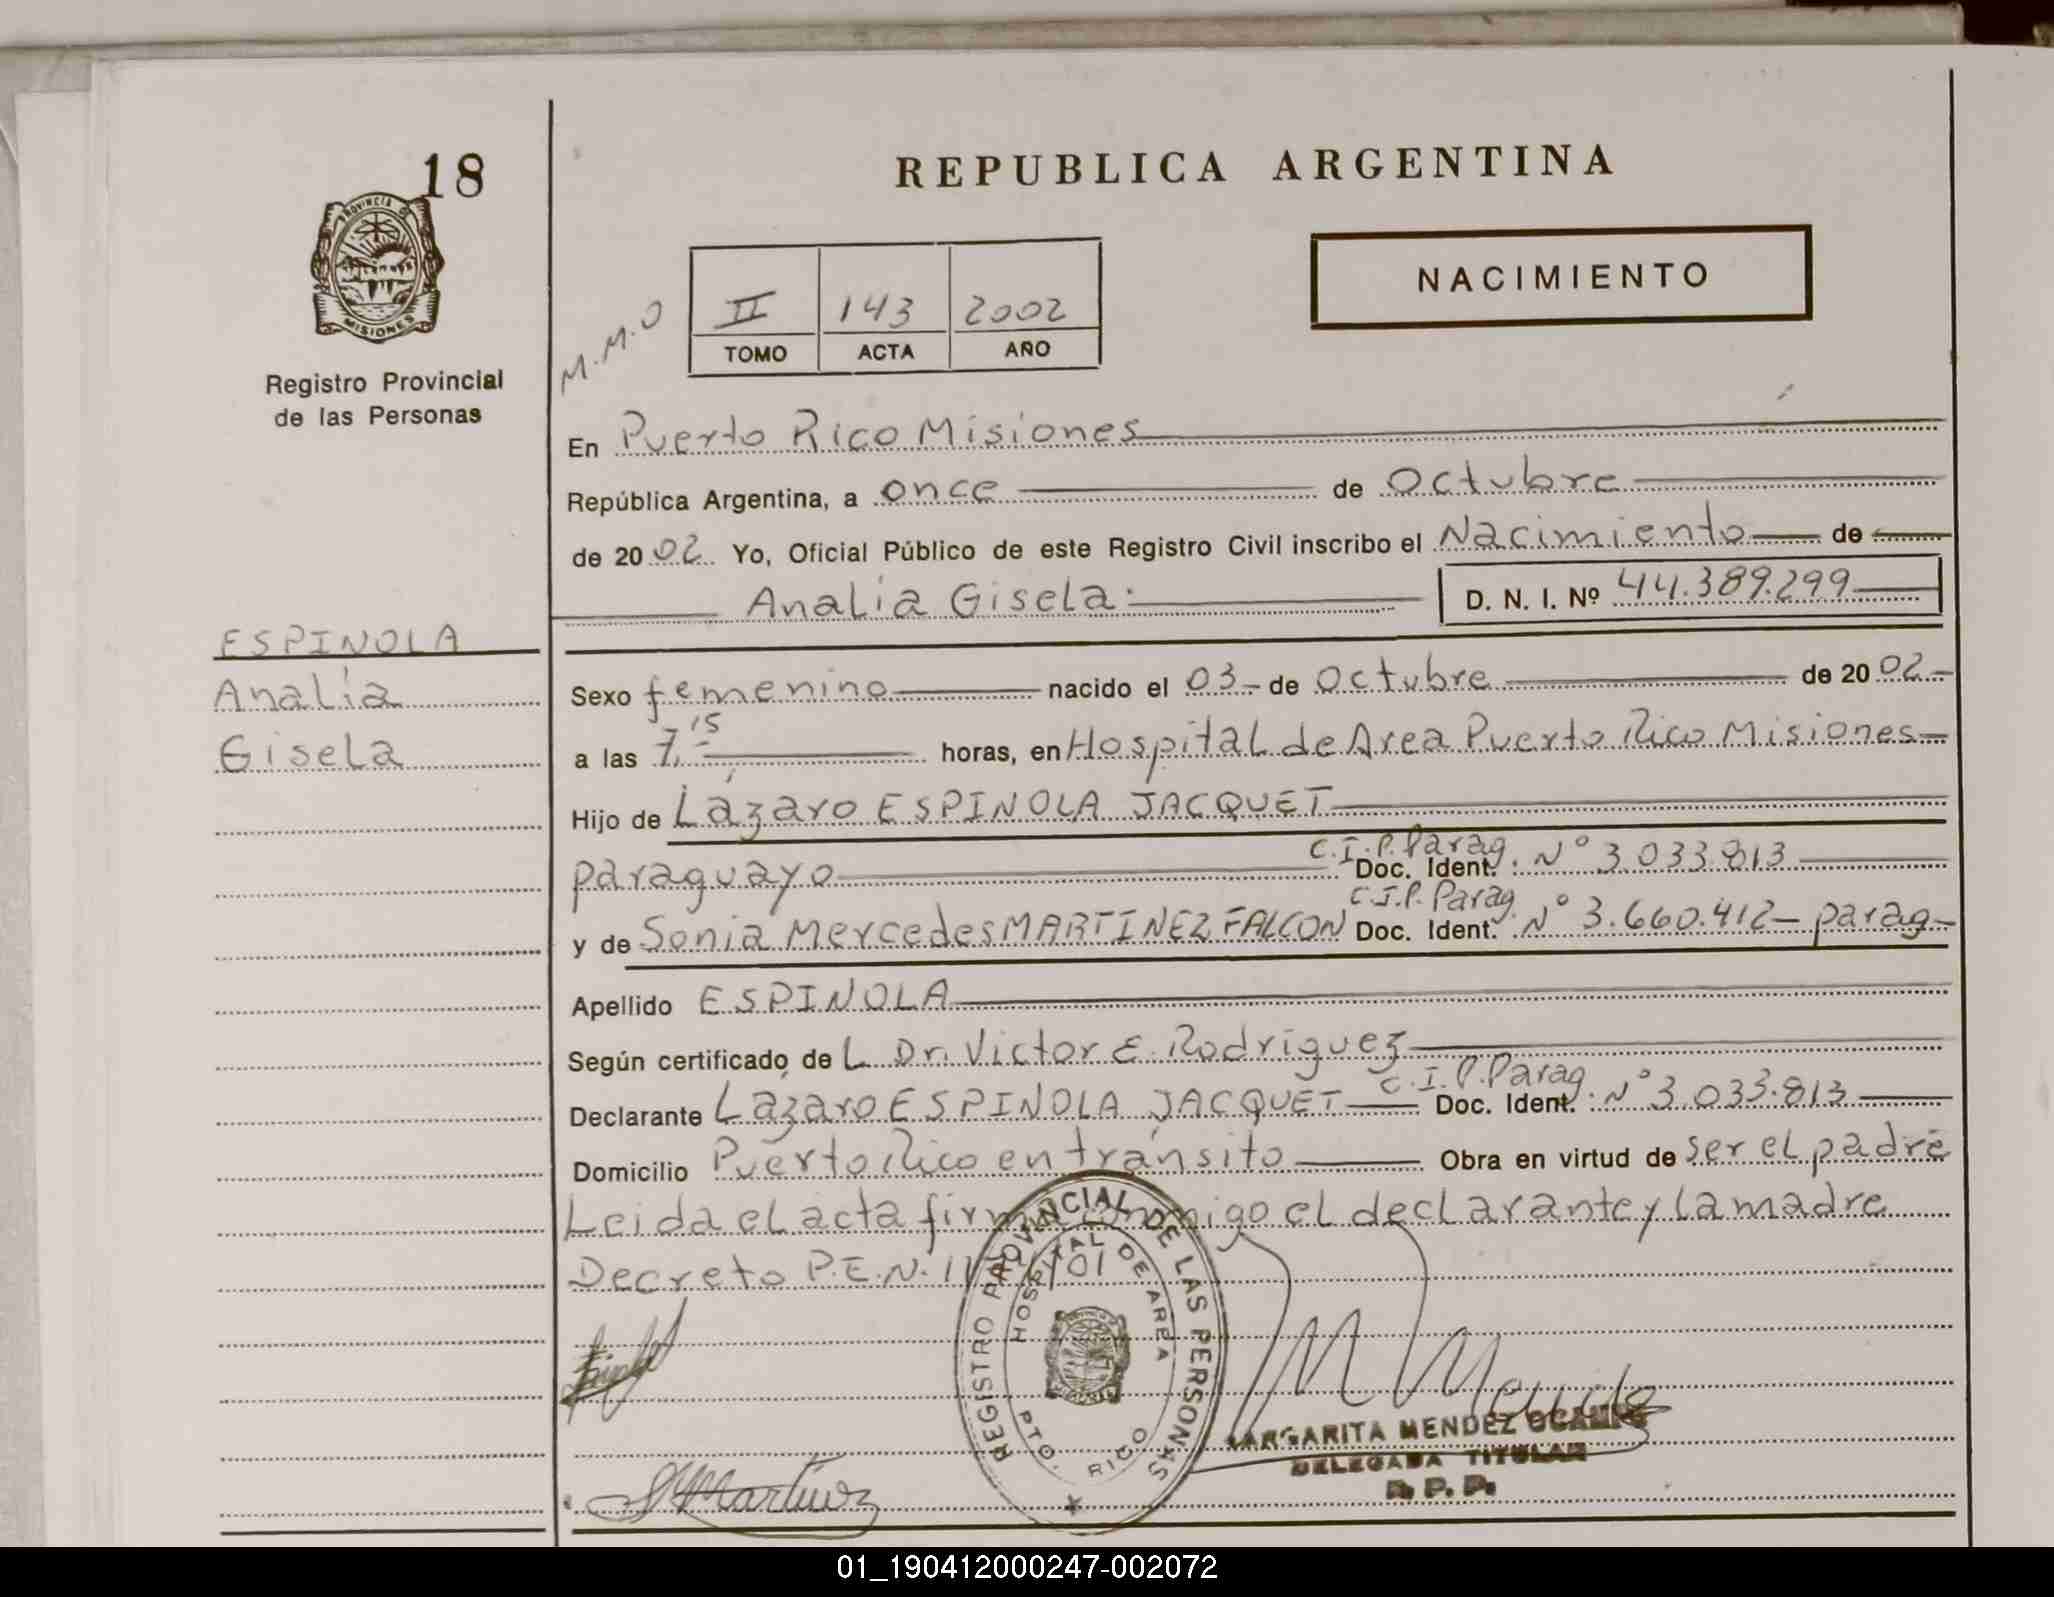 18
PROVINCIA DE
MISIONES
Registro Provincial
de las Personas
REPUBLICA ARGENTINA
NACIMIENTO
M.M.O
II 143 2002
TOMO ACTA AÑO
En Puerto Rico Misiones
República Argentina, a once de Octubre
de 2002. Yo, Oficial Público de este Registro Civil inscribo el Nacimiento de
Analia Gisela.
D. N. I. Nº 44.389.299
ESPINOLA
Analía
Gisela
Sexo femenino nacido el 03 de Octubre de 2002
a las 7,15 horas, en Hospital de Area Puerto Rico Misiones
Hijo de Lázaro ESPINOLA JACQUET
paraguayo C.I.P. Parag. Doc. Ident. Nº 3.033.813
y de Sonia Mercedes MARTINEZ FALCON C.I.P. Parag. Doc. Ident. Nº 3.660.412 parag
Apellido ESPINOLA
Según certificado de L Dr. Victor E. Rodríguez
Declarante Lázaro ESPINOLA JACQUET C.I.P. Parag. Doc. Ident. Nº 3.033.813
Domicilio Puerto Rico en tránsito Obra en virtud de ser el padre
Leida el acta firma conmigo el declarante y la madre
Decreto P.E.N. 01
REGISTRO PROVINCIAL DE LAS PERSONAS
HOSPITAL DE AREA
PTO. RICO
Martinez
MARGARITA MENDEZ OCAMPO
DELEGADA TITULAR
R. P. P.
01_190412000247-002072